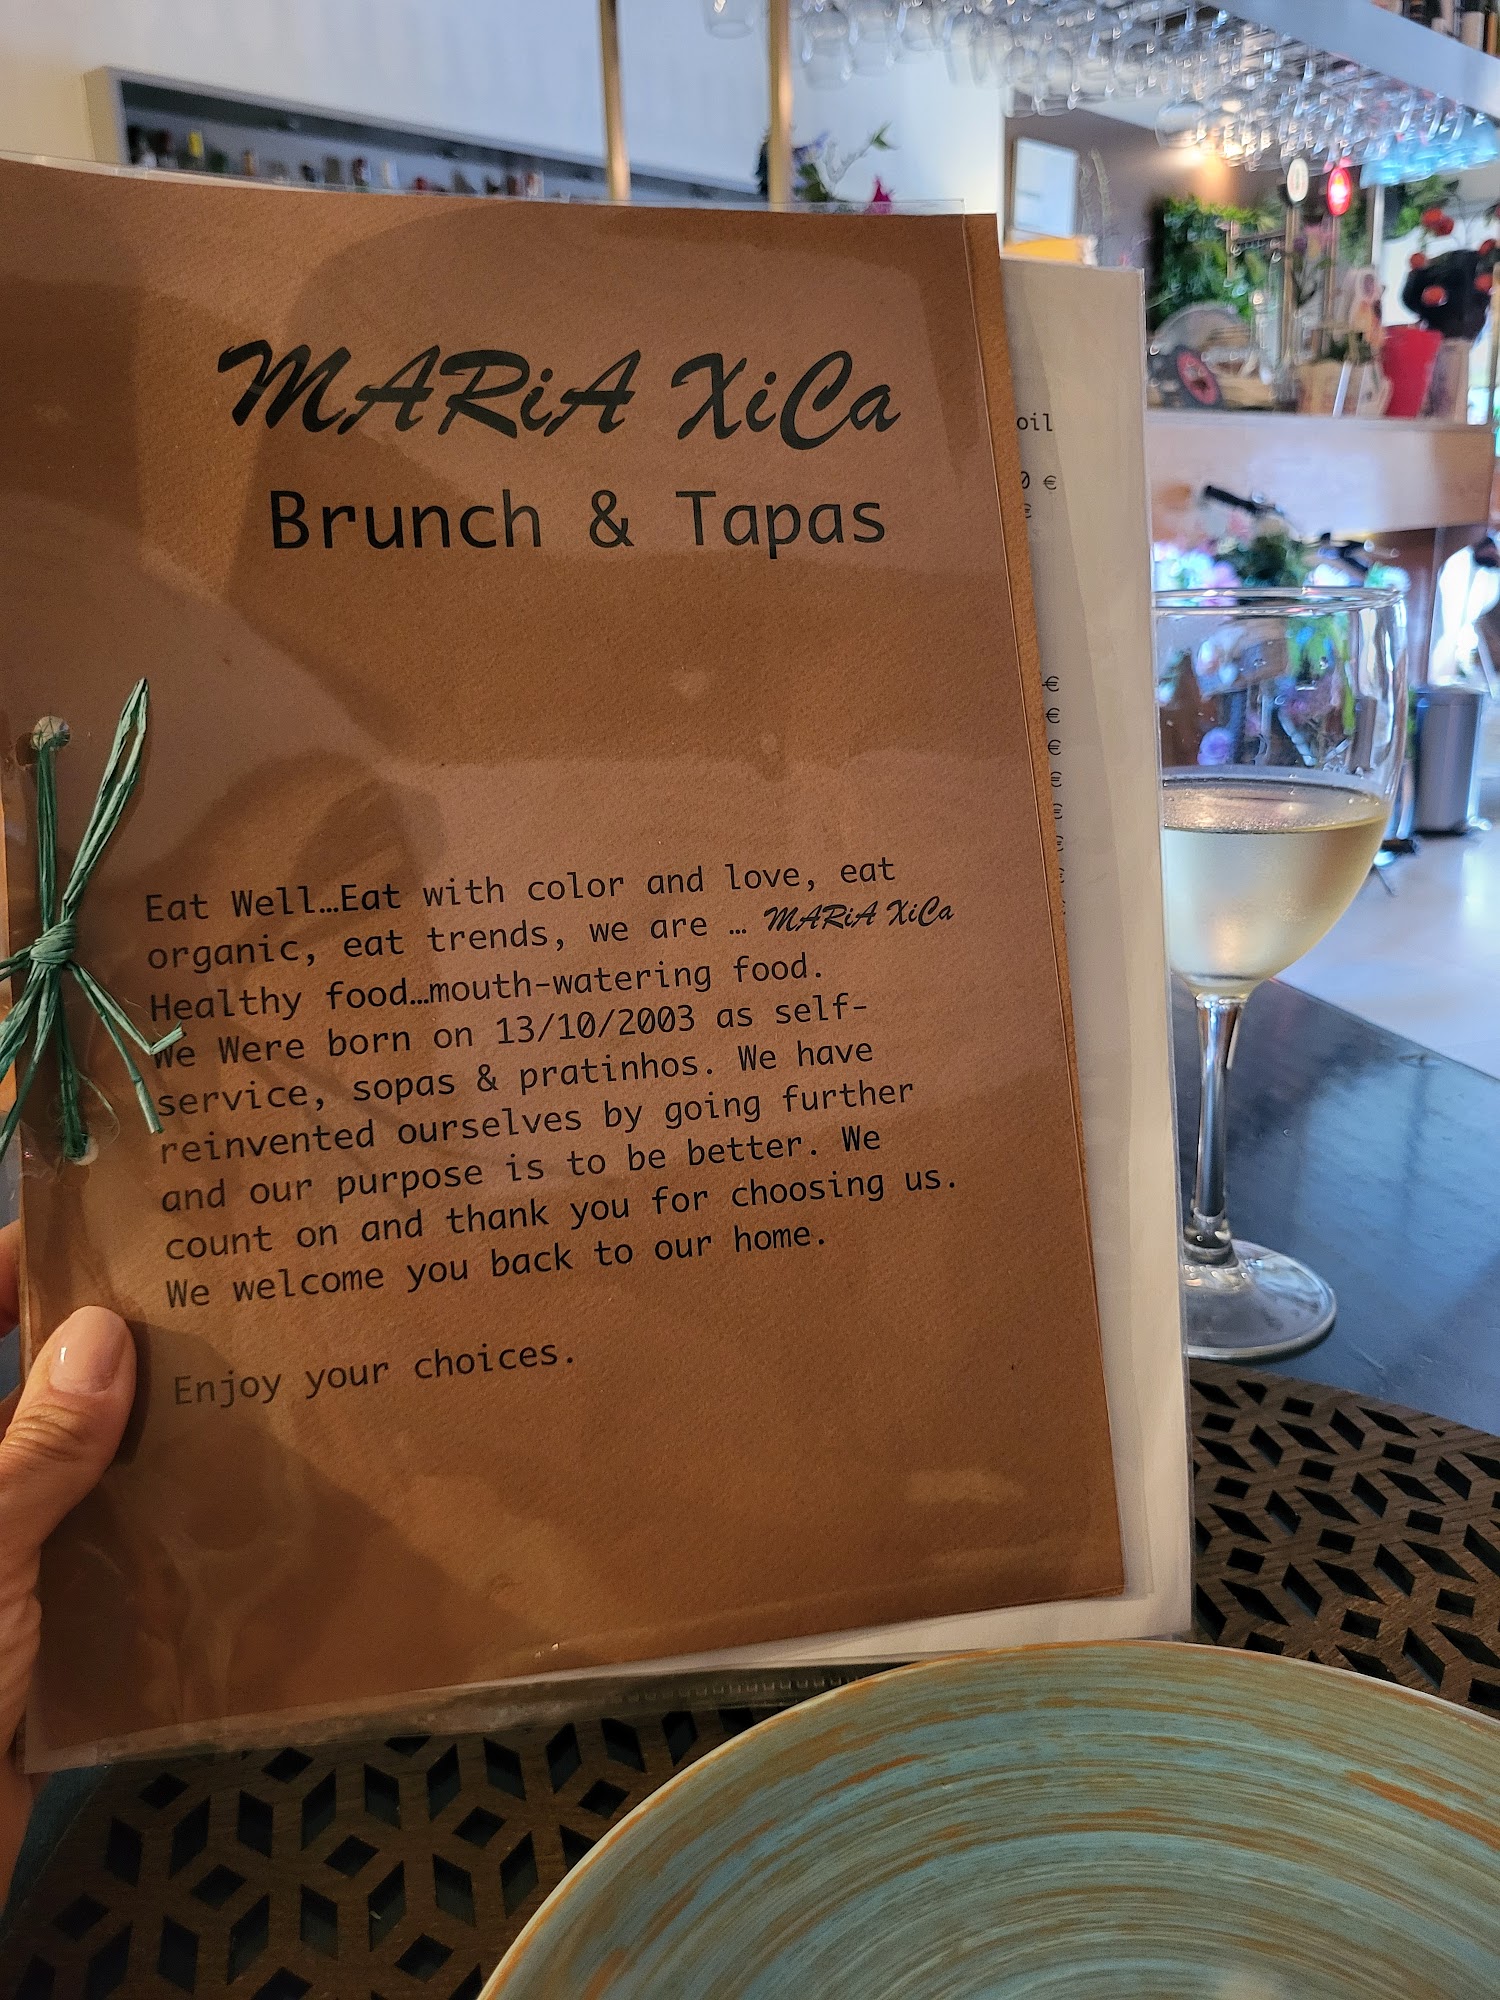 MARiA XiCa
Brunch & Tapas
Eat Well…Eat with color and love, eat
organic, eat trends, we are … MARiA XiCa
Healthy food…mouth-watering food.
We Were born on 13/10/2003 as self-
service, sopas & pratinhos. We have
reinvented ourselves by going further
and our purpose is to be better. We
count on and thank you for choosing us.
We welcome you back to our home.
Enjoy your choices.
oil
0 €
€
€
€
€
€
€
€